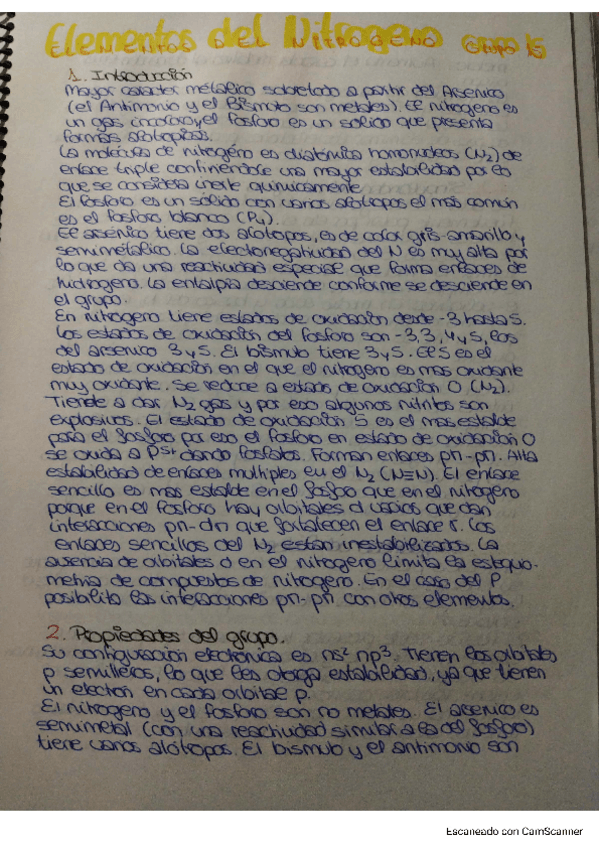 Elementos del Nitrogeno Grupo 15
ELEMENTOS DEL NITROGENO GRUPO 15
1. Introducción
Mayor caracter metalico sobretodo a partir del Arsenico
(el Antimonio y el Bismuto son metales). El nitrogeno es
un gas incoloro y el fosforo es un solido que presenta
formas alotropicas.
La molecula de nitrogéno es diatómica homonucleos (N₂) de
enlace triple confiriendole una mayor estabilidad por lo
que se considera inerte quimicamente
El fosforo es un sólido con varios alótropos el más común
es el fosforo blanco (P₄).
El arsenico tiene dos alótopos, es de color gris-amarillo y
semimetálico. La electronegatividad del N es muy alta por
lo que da una reactividad especial que forma enlaces de
hidrogeno. La entalpia desciende conforme se desciende en
el grupo.
En nitrogeno tiene estados de oxidación desde -3 hasta 5.
Los estados de oxidación del fosforo son -3, 3, 4 y 5, los
del arsenico 3 y 5. El bismuto tiene 3 y 5. El 5 es el
estado de oxidación en el que el nitrogeno es mas oxidante
muy oxidante. Se reduce a estado de oxidacion 0 (N₂).
Tiende a dar N₂ gas y por eso algunos nitritos son
explosivos. El estado de oxidación 5 es el mas estable
para el fosforo por eso el fosforo en estado de oxidación 0
se oxida a P⁵⁺ dando fosfatos. Forman enlaces pπ-pπ. Alta
estabilidad de enlaces multiples en el N₂ (N≡N). El enlace
sencillo es mas estable en el fosforo que en el nitrógeno
porque en el fosforo hay orbitales d vacios que dan
interacciones pπ-dπ que fortalecen el enlace σ. Los
enlaces sencillos del N₂ estan inestabilizados. La
ausencia de orbitales d en el nitrogeno limita la estequio-
metria de compuestos de nitrogeno. En el caso del P
posibilita las interacciones pπ-pπ con otros elementos.
2. Propiedades del grupo.
Su configuración electronica es ns² np³. Tienen los orbitales
p semilleros, lo que les otorga estabilidad, ya que tienen
un electron en cada orbital p.
El nitrogeno y el fosforo son no metales. El arsenico es
semimetal (con una reactividad similar a la del fosforo)
tiene varios alótropos. El bismuto y el antimonio son
Escaneado con CamScanner